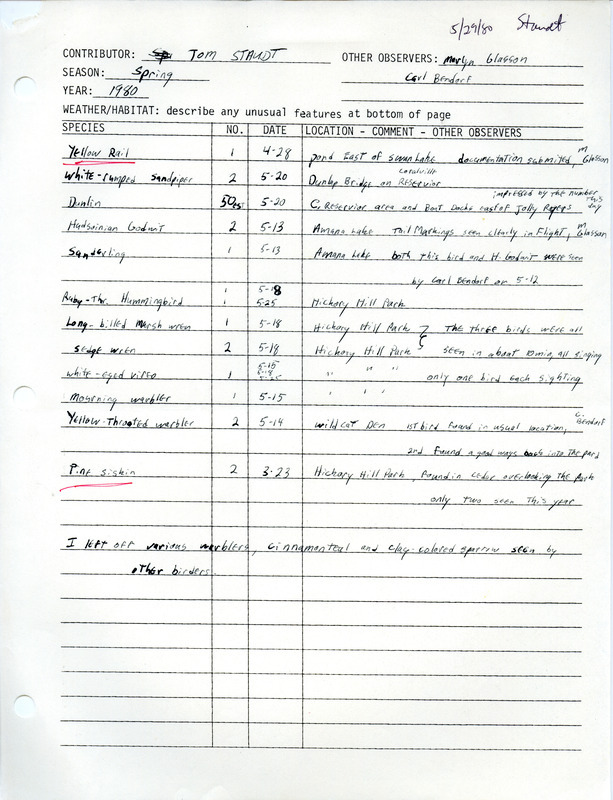 5/29/80 Staudt
CONTRIBUTOR: TOM STAUDT OTHER OBSERVERS: Marlyn Glasson
SEASON: Spring Carl Bendorf
YEAR: 1980
WEATHER/HABITAT: describe any unusual features at bottom of page
SPECIES NO. DATE LOCATION - COMMENT - OTHER OBSERVERS
Yellow Rail 1 4-28 pond East of Swan Lake documentation submited, M Glasson
White-rumped Sandpiper 2 5-20 Dunlop Bridge on Coralville Reservior
Dunlin 50 5-20 C. Reservior area and Boat Docks east of Jolly Rogers impressed by the number this day
Hudsonian Godwit 2 5-13 Amana Lake Tail Markings seen clearly in Flight, M Glasson
Sanderling 1 5-13 Amana Lake both this bird and H. Godwit were seen
by Carl Bendorf on 5-12
1 5-18
Ruby-Thr. Hummingbird 1 5-25 Hickory Hill Park
Long-billed Marsh wren 1 5-18 Hickory Hill Park } The three birds were all
Sedge wren 2 5-18 Hickory Hill Park seen in about 10 min, all singing
5-15
5-18
white-eyed vireo 1 5-25 " " " only one bird each sighting
Mourning warbler 1 5-15 " " "
Yellow-Throated warbler 2 5-14 wildcat Den 1st bird found in usual location, C. Bendorf
2nd found a good ways back into the park
Pine Siskin 2 3-23 Hickory Hill Park, found in cedar overlooking the park
only two seen this year
I left off various warblers, cinnamon teal and clay-colored sparrow seen by
other birders.